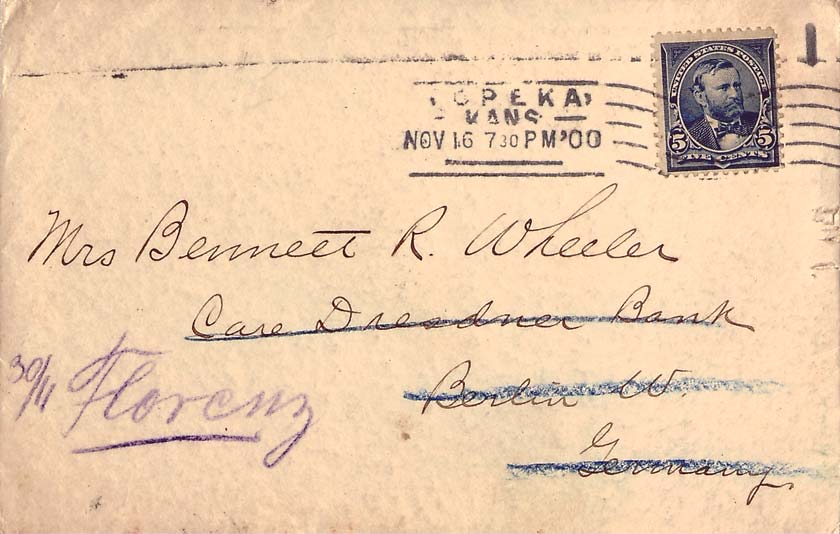 UNITED STATES POSTAGE
5 5
FIVE CENTS
TOPEKA,
KANS
NOV 16 730 PM '00
Mrs Bennett R. Wheeler
Care Dresdner Bank
Berlin W.
Germany.
30/11 Florenz